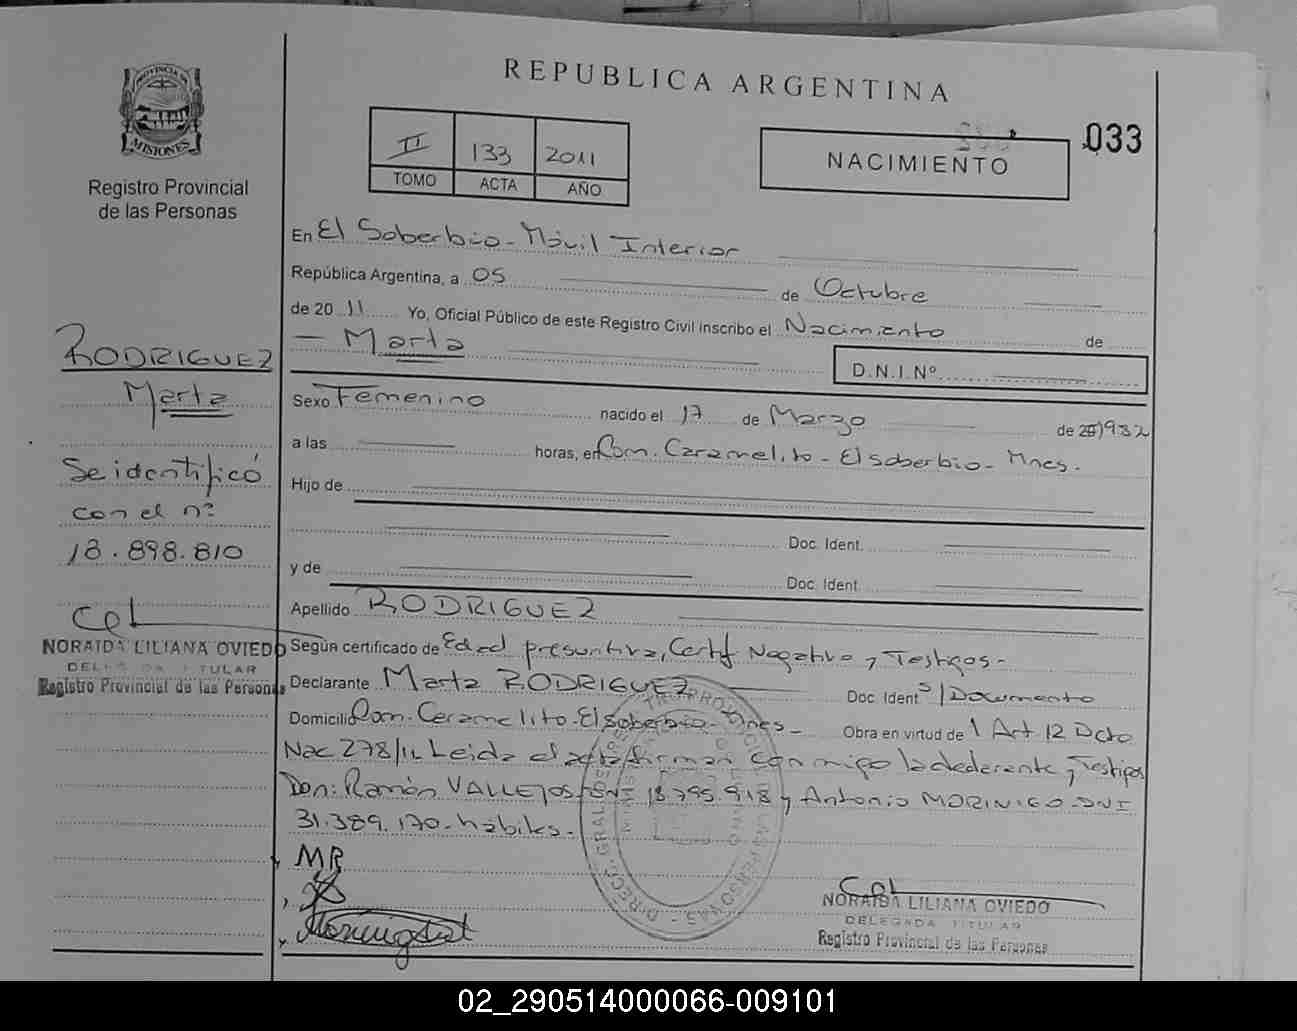 REPUBLICA ARGENTINA
PROVINCIA DE
MISIONES
Registro Provincial
de las Personas
II 133 2011
TOMO ACTA AÑO
NACIMIENTO
033
En El Soberbio - Móvil Interior
República Argentina, a 05 de Octubre
de 20 11 Yo, Oficial Público de este Registro Civil inscribo el Nacimiento de
- Marta
D.N.I.Nº
RODRIGUEZ
Marta
Se identificó
con el nº
18.898.810
NORAIDA LILIANA OVIEDO
DELEGADA TITULAR
Registro Provincial de las Personas
Sexo Femenino nacido el 17 de Marzo de 1932
a las horas, en Com. Caramelito - El soberbio - Mnes.
Hijo de
Doc. Ident.
y de
Doc. Ident.
Apellido RODRIGUEZ
Según certificado de Edad presuntiva, Certif Negativo y Testigos -
Declarante Marta RODRIGUEZ Doc. Ident S/Documento
Domicilio Com. Caramelito - El soberbio - Mnes - Obra en virtud de 1 Art 12 Dcto
Nac 278/11 Leida el acta firman conmigo la declarante y Testigos
Don: Ramón VALLEJOS DNI 18.795.918 y Antonio MORINIGO - DNI
31.389.170 - hábiles -
MR
NORAIDA LILIANA OVIEDO
DELEGADA TITULAR
Registro Provincial de las Personas
02_290514000066-009101